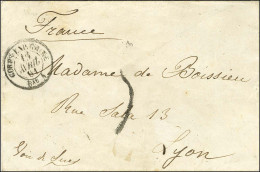 France
CORPS EXP. CHINE
14
AVRIL
61
BAU A
Madame de Boissieu
Rue Sala 13
Lyon
Voie de Suez